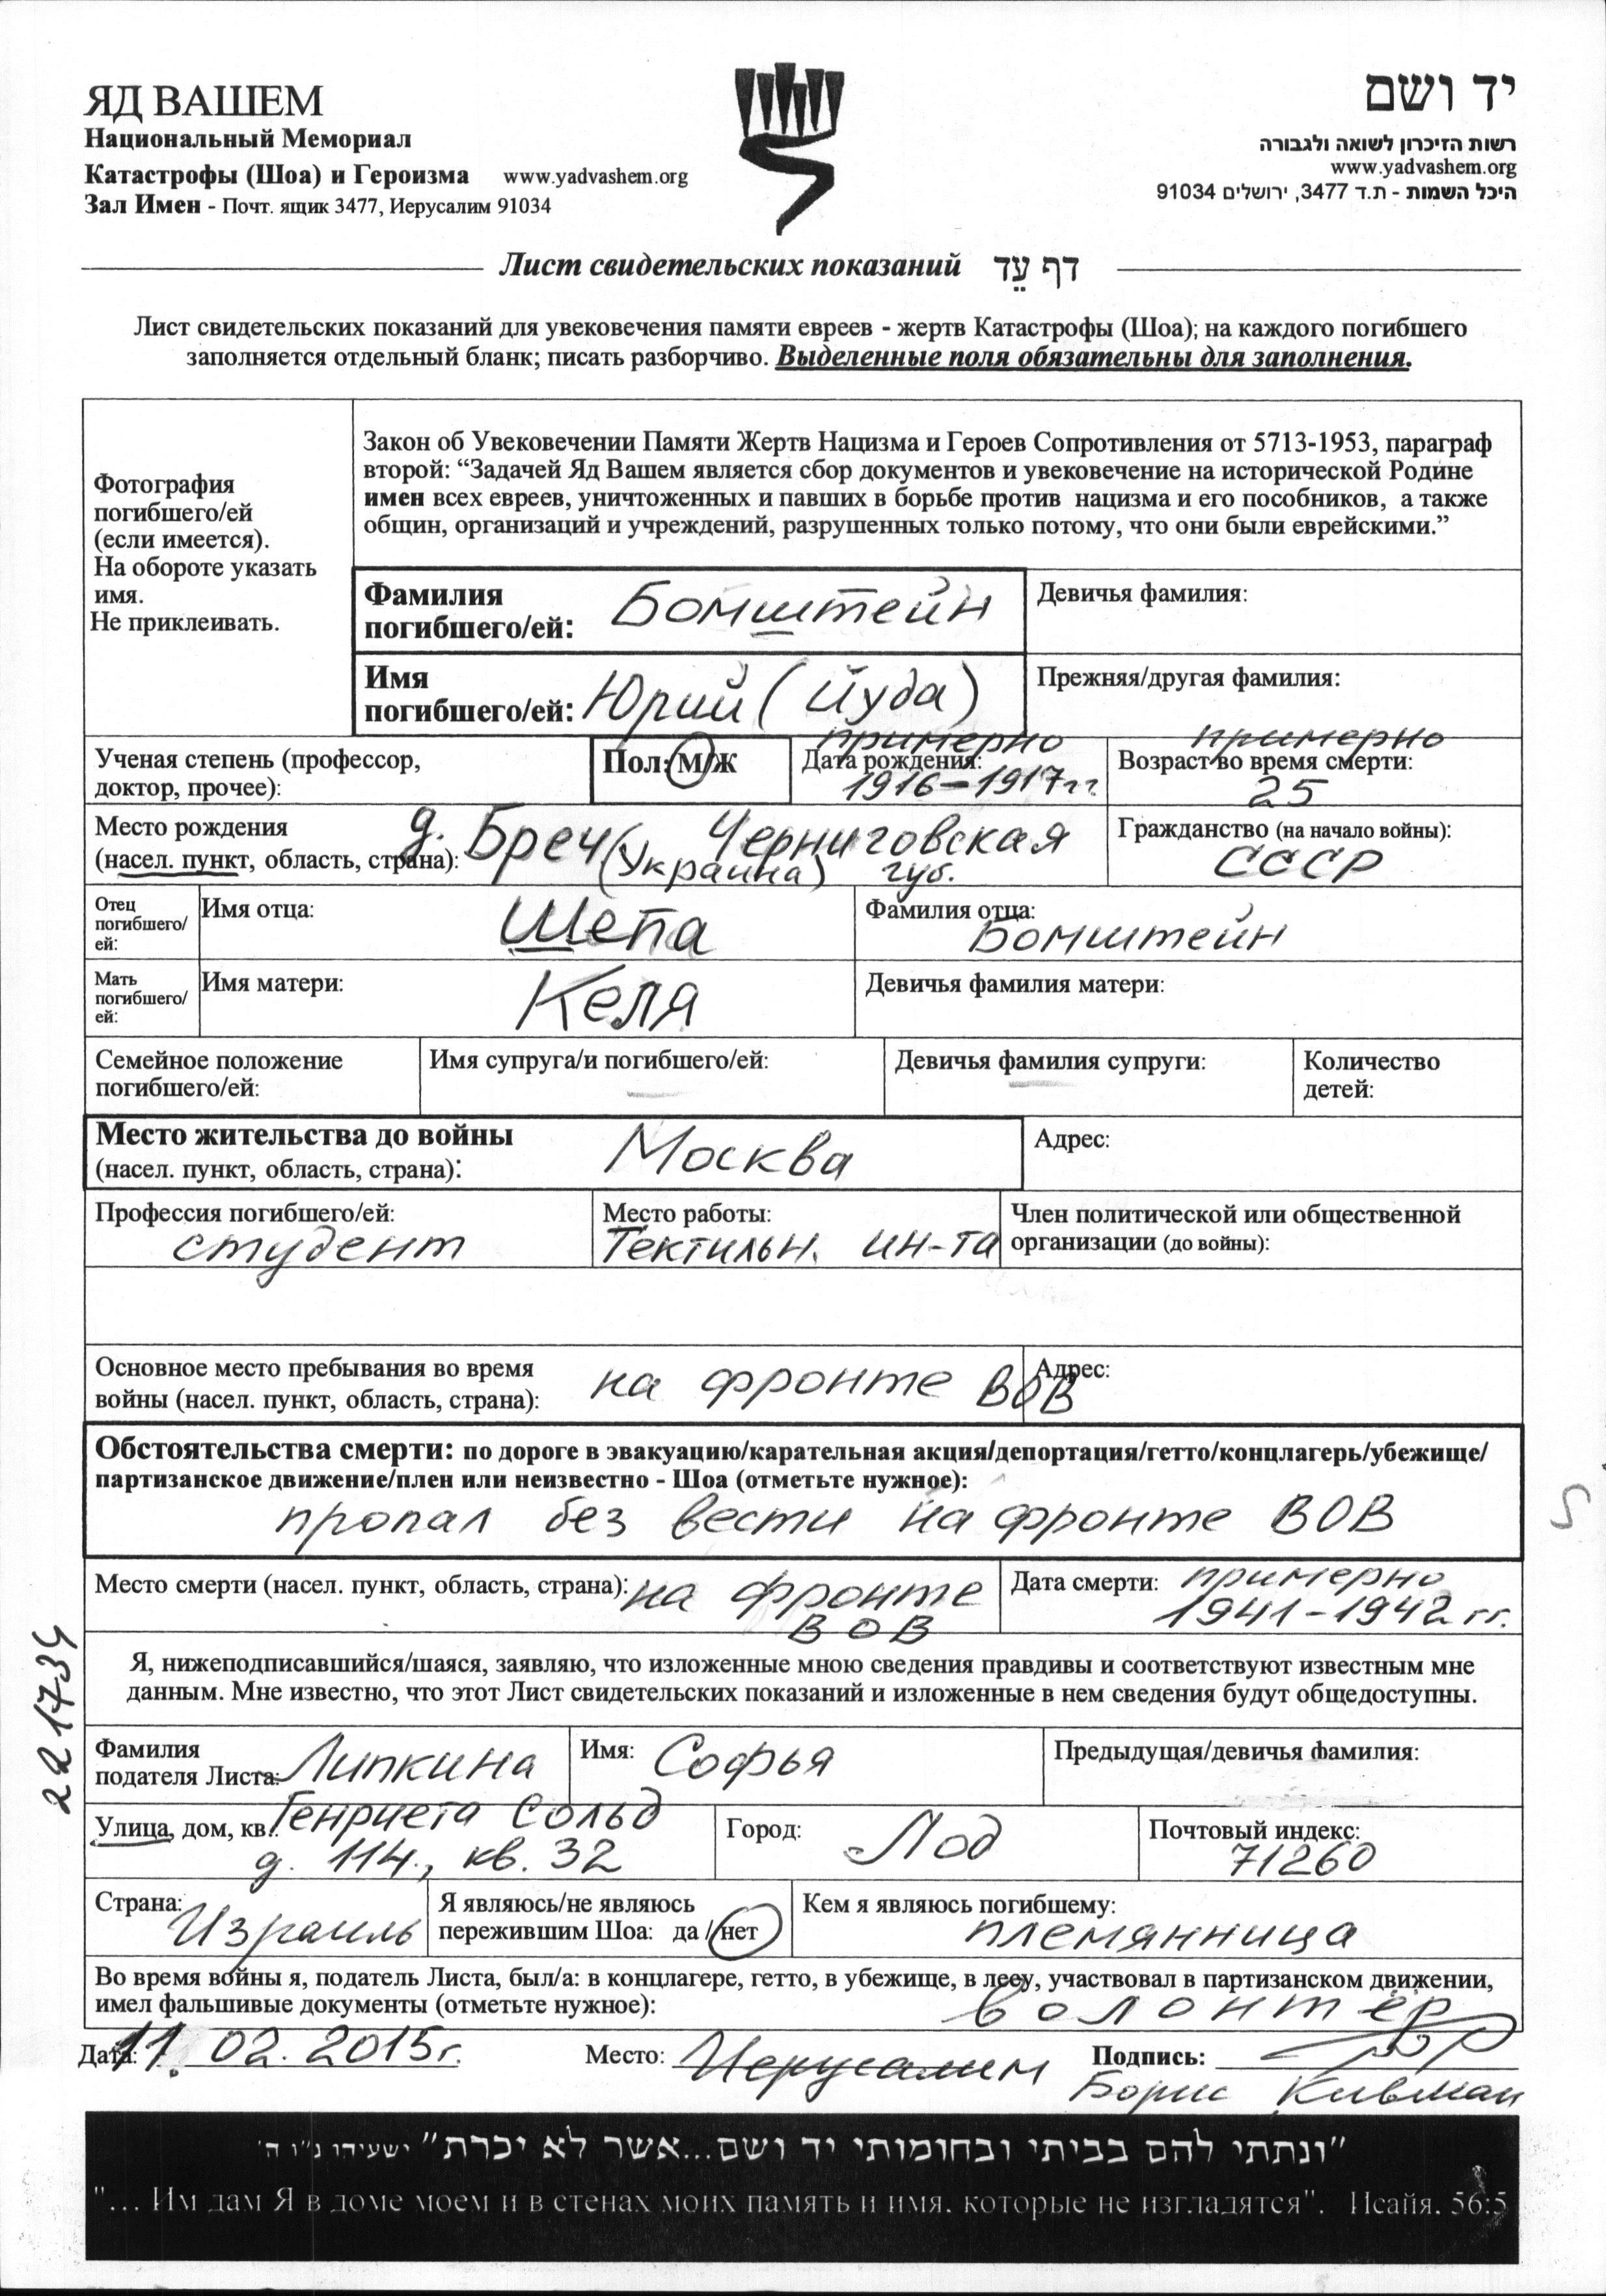 ЯД ВАШЕМ
Национальный Мемориал
Катастрофы (Шоа) и Героизма www.yadvashem.org
Зал Имен - Почт. ящик 3477, Иерусалим 91034
יד ושם
רשות הזיכרון לשואה ולגבורה
www.yadvashem.org
היכל השמות - ת.ד 3477, ירושלים 91034
Лист свидетельских показаний דף עֵד
Лист свидетельских показаний для увековечения памяти евреев - жертв Катастрофы (Шоа); на каждого погибшего
заполняется отдельный бланк; писать разборчиво. Выделенные поля обязательны для заполнения.
Фотография
погибшего/ей
(если имеется).
На обороте указать
имя.
Не приклеивать.
Закон об Увековечении Памяти Жертв Нацизма и Героев Сопротивления от 5713-1953, параграф
второй: “Задачей Яд Вашем является сбор документов и увековечение на исторической Родине
имен всех евреев, уничтоженных и павших в борьбе против нацизма и его пособников, а также
общин, организаций и учреждений, разрушенных только потому, что они были еврейскими.”
Фамилия
погибшего/ей: Бомштейн
Девичья фамилия:
Имя
погибшего/ей: Юрий (Йуда)
Прежняя/другая фамилия:
Ученая степень (профессор,
доктор, прочее):
Пол: М/Ж
примерно
Дата рождения:
1916-1917 гг.
примерно
Возраст во время смерти:
25
Место рождения
(насел. пункт, область, страна): д. Бреч (Украина) Черниговская губ.
Гражданство (на начало войны):
СССР
Отец
погибшего/
ей:
Имя отца: Шепа
Фамилия отца:
Бомштейн
Мать
погибшего/
ей:
Имя матери: Келя
Девичья фамилия матери:
Семейное положение
погибшего/ей:
Имя супруга/и погибшего/ей:
—
Девичья фамилия супруги:
—
Количество
детей:
Место жительства до войны
(насел. пункт, область, страна): Москва
Адрес:
Профессия погибшего/ей:
студент
Место работы:
Тектильн. ин-та
Член политической или общественной
организации (до войны):
Основное место пребывания во время
войны (насел. пункт, область, страна): на фронте ВОВ
Адрес:
Обстоятельства смерти: по дороге в эвакуацию/карательная акция/депортация/гетто/концлагерь/убежище/
партизанское движение/плен или неизвестно - Шоа (отметьте нужное):
пропал без вести на фронте ВОВ
Место смерти (насел. пункт, область, страна): на фронте
ВОВ
Дата смерти: примерно
1941-1942 гг.
221734
Я, нижеподписавшийся/шаяся, заявляю, что изложенные мною сведения правдивы и соответствуют известным мне
данным. Мне известно, что этот Лист свидетельских показаний и изложенные в нем сведения будут общедоступны.
Фамилия
подателя Листа: Липкина
Имя: Софья
Предыдущая/девичья фамилия:
Улица, дом, кв.: Генриета Сольд
д. 114., кв. 32
Город: Лод
Почтовый индекс:
71260
Страна:
Израиль
Я являюсь/не являюсь
пережившим Шоа: да / нет
Кем я являюсь погибшему:
племянница
Во время войны я, податель Листа, был/а: в концлагере, гетто, в убежище, в лесу, участвовал в партизанском движении,
имел фальшивые документы (отметьте нужное): волонтёр
Дата: 11. 02. 2015г.
Место: Иерусалим
Подпись:
Борис Кивман
"ונתתי להם בביתי ובחומותי יד ושם...אשר לא יכרת" ישעיהו נ"ו ה'
"... Им дам Я в доме моем и в стенах моих память и имя. которые не изгладятся". Исайя. 56:5